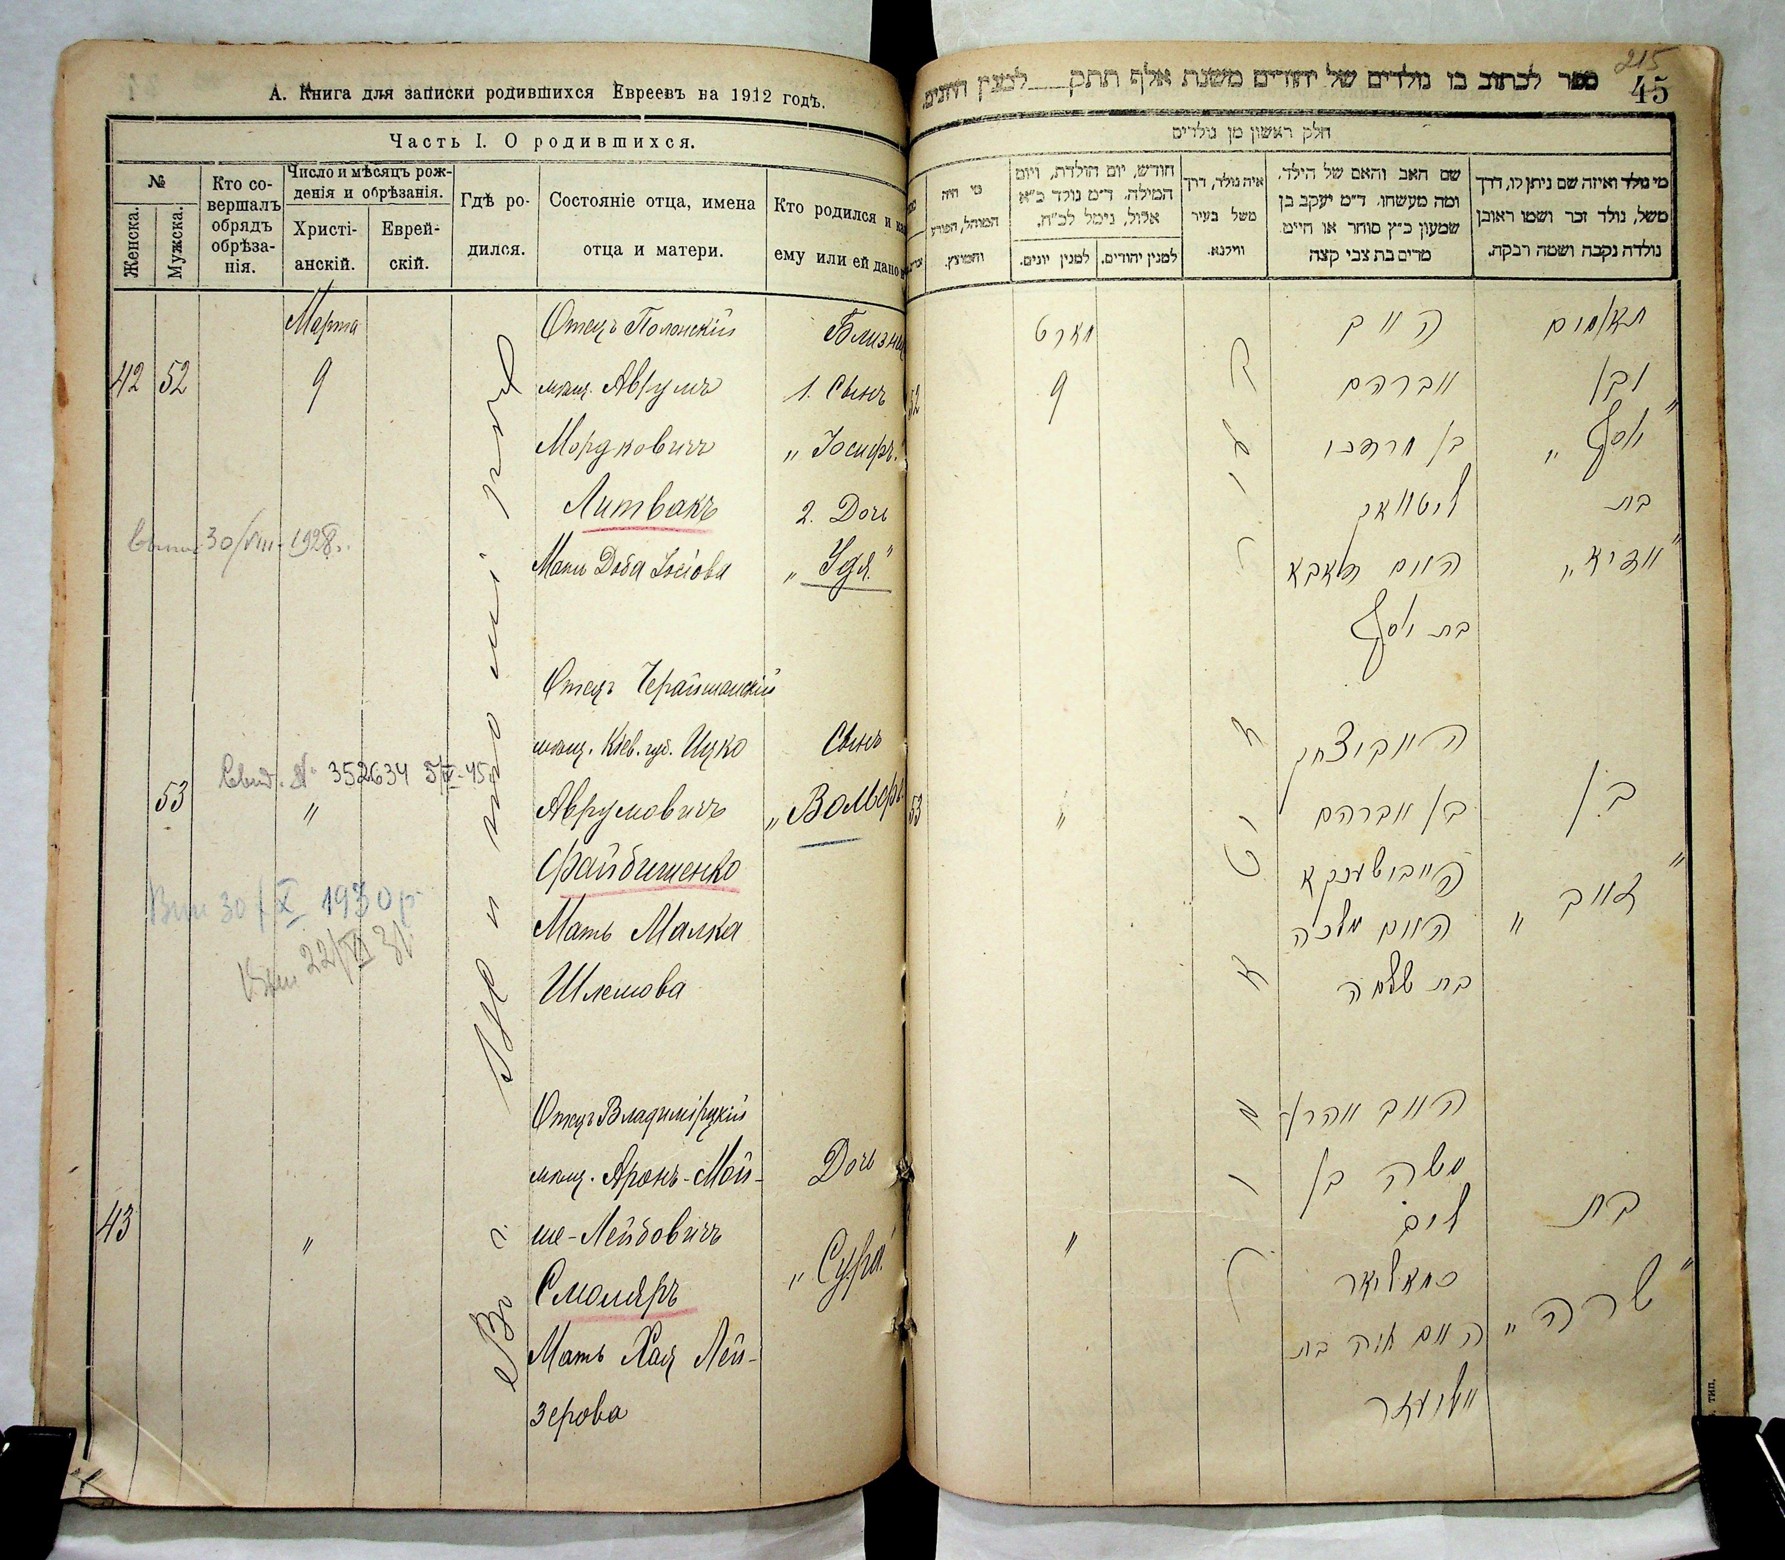 А. Книга для записки родившихся Евреевъ на 1912 годъ.
Часть I. О родившихся.
№
Женска.
Мужска.
Кто со-
вершалъ
обрядъ
обрѣза-
нія.
Число и мѣсяцъ рож-
денія и обрѣзанія.
Христі-
анскій.
Еврей-
скій.
Гдѣ ро-
дился.
Состояніе отца, имена
отца и матери.
Кто родился и ка
ему или ей дано
Марта
42 52 9
Отецъ Полонскій
мѣщ. Аврумъ
Мордковичъ
Литвакъ
Мать Доба Іосіова
Близн
1. Сынъ
„ Іосифъ.
2. Дочь
„ Удя.“
30/VIII-1928.
53 „
Отецъ Черайшанскій
мѣщ. Кіев. губ. Ицко
Аврумовичъ
Файбишенко
Мать Малка
Шлемова
Сынъ
„Вольфъ
№ 352634
30/X 1930 р
22/VI 31
43 „
Отецъ Владимірцкій
мѣщ. Аронъ-Мой-
ше-Лейбовичъ
Смоляръ
Мать Хая Лей-
зерова
Дочь
„Сура.“
215
45
ספר לכתוב בו נולדים של יהודים משנת אלף תתק לטעין היונים.
חלק ראשון מן נולדים
מי נולד ואיזה שם ניתן לו, דרך
משל, נולד זכר ושמו ראובן
נולדה נקבה ושמה רבקה.
שם האב והאם של הילד,
ומה מעשהו. ד״מ יעקב בן
שמעון כ״ץ סוחר או חייט
מרים בת צבי קצה
איה נולד, דרך
משל בעיר
ווילנא.
חודש, יום הולדת, ויום
המילה. ד״מ נולד כ״א
אלול, נימל לכ״ח.
למנין יהודים.
למנין יונים.
מי היה
המוהל, הפורע
והמוצץ.
תאומים
ובן
„ יוסף “
בת
האב
אברהם
בן מרדכי
ליטוואק
האם
בת יוסף
מארט
9
52
בן
„
האב יצחק
בן אברהם
האם מלכה
בת שלמה
„
53
בת
„ שרה “
האב אהרן
משה בן
לייב
סמאליאר
האם חיה בת
אליעזר
„
тип.